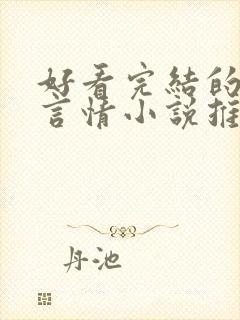 好看完結的
言情小說推
丹池